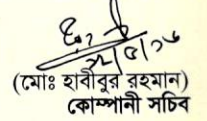 (মোঃ হাবীবুর রহমান)
কোম্পানী সচিব